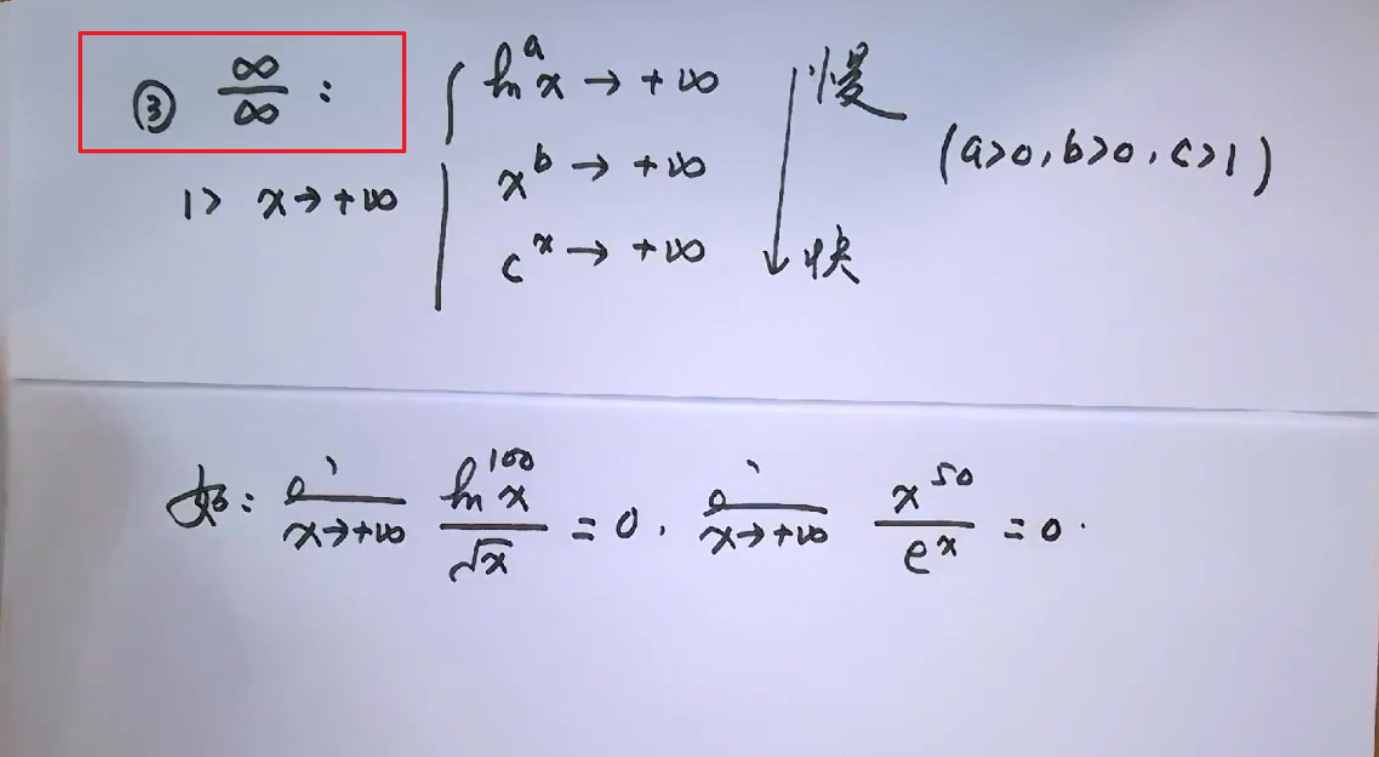 ③ ∞/∞ :
1> x→+∞ { ln^a x → +∞
x^b → +∞
c^x → +∞
慢
快
(a>0, b>0, c>1)
如: lim x→+∞ ln^100 x / √x = 0, lim x→+∞ x^50 / e^x = 0.